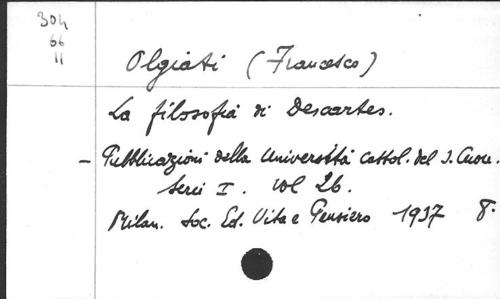 304
66
11
Olgiati (Francesco)
La filosofia di Descartes.
– Pubblicazioni della Università Cattol. del S. Cuore.
Serie I. vol 26.
Milan. Soc. Ed. Vita e Pensiero 1937 8°